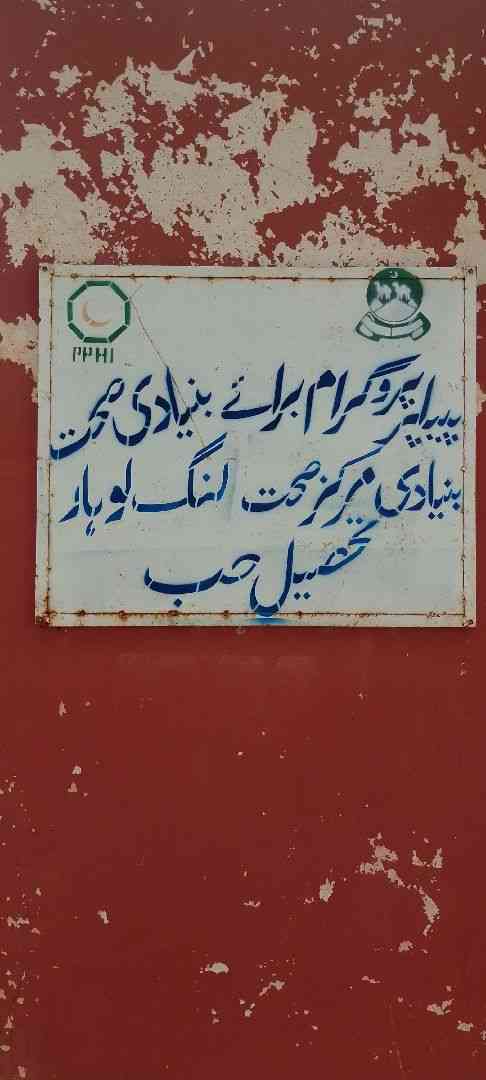 PPHI
پیپلز پروگرام برائے بنیادی صحت
بنیادی مرکز صحت لنگ لوہار
تحصیل حب